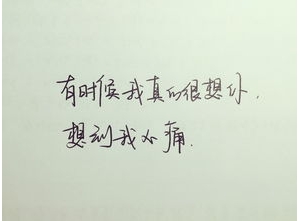 有时候我真的很想你,
想到我心痛.